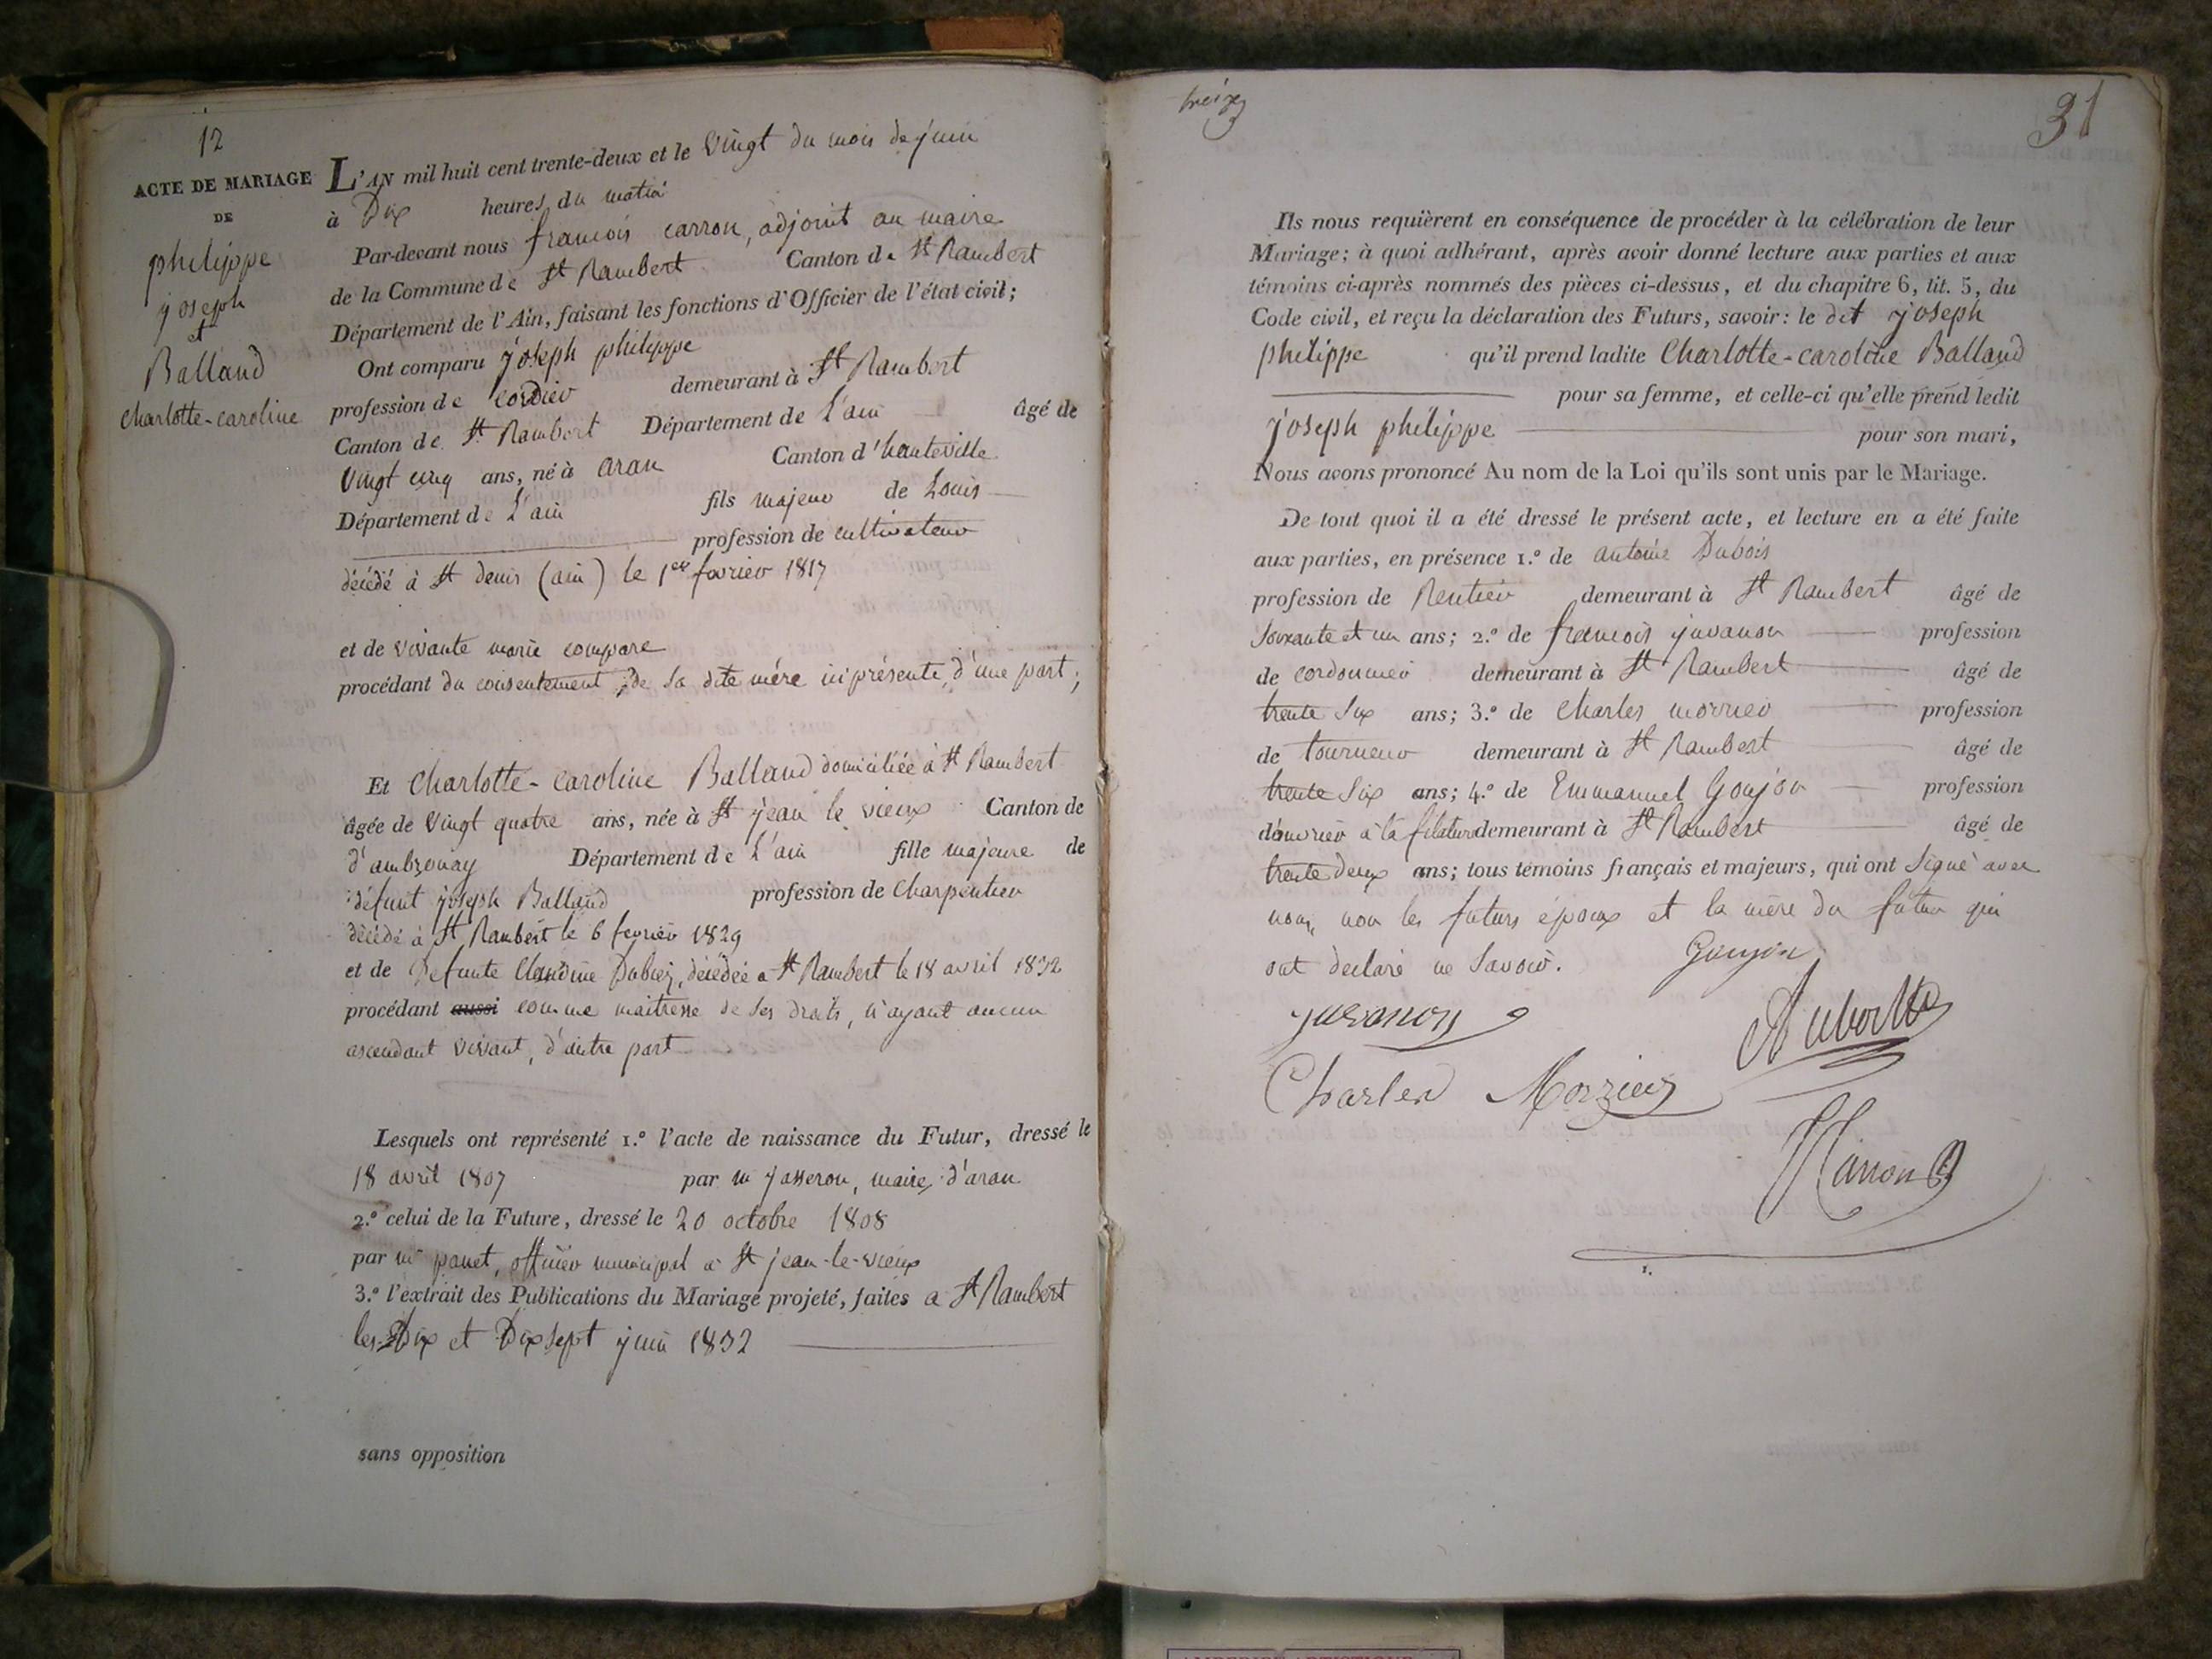 12
ACTE DE MARIAGE
DE
philippe
joseph
et
Balland
charlotte-caroline
L'AN mil huit cent trente-deux et le vingt du mois de juin
à Dix heures du matin
Par-devant nous francois carron, adjoint au maire
de la Commune de St Rambert Canton de St Rambert
Département de l'Ain, faisant les fonctions d'Officier de l'état civil;
Ont comparu joseph philippe
profession de cordier demeurant à St Rambert
Canton de St Rambert Département de L'ain âgé de
vingt cinq ans, né à aran Canton d'hauteville
Département de L'ain fils majeur de Louis
profession de cultivateur
décédé à St denis (ain) le 1er fevrier 1817
et de vivante marie compare
procédant du consentement de sa dite mére ici présente, d'une part;
Et Charlotte-caroline Balland domiciliée à St Rambert
âgée de vingt quatre ans, née à St jean le vieux Canton de
d'ambronay Département de L'ain fille majeure de
défunt joseph Balland profession de charpentier
décédé à St Rambert le 6 fevrier 1829
et de Defunte Claudine, décédée a St Rambert le 18 avril 1832
procédant aussi comme maitresse de ses droits, n'ayant aucun
ascendant vivant, d'autre part
Lesquels ont représenté 1.º l'acte de naissance du Futur, dressé le
18 avril 1807 par m jasseron, maire, d'aran
2.º celui de la Future, dressé le 20 octobre 1808
par mr panet, officier municipal a St jean-le-vieux
3.º l'extrait des Publications du Mariage projeté, faites a St Rambert
les Dix et Dix sept juin 1832
sans opposition
treize
31
Ils nous requièrent en conséquence de procéder à la célébration de leur
Mariage; à quoi adhérant, après avoir donné lecture aux parties et aux
témoins ci-après nommés des pièces ci-dessus, et du chapitre 6, tit. 5, du
Code civil, et reçu la déclaration des Futurs, savoir: le dit joseph
philippe qu'il prend ladite Charlotte-caroline Balland
pour sa femme, et celle-ci qu'elle prend ledit
joseph philippe pour son mari,
Nous avons prononcé Au nom de la Loi qu'ils sont unis par le Mariage.
De tout quoi il a été dressé le présent acte, et lecture en a été faite
aux parties, en présence 1.º de antoine Dubois
profession de Rentier demeurant à St Rambert âgé de
soixante et un ans; 2.º de francois juvanon profession
de cordonnier demeurant à St Rambert âgé de
trente six ans; 3.º de Charles morrier profession
de tourneur demeurant à St Rambert âgé de
trente six ans; 4.º de Emmanuel Goujon profession
d'ouvrier à la filature demeurant à St Rambert âgé de
trente deux ans; tous témoins français et majeurs, qui ont signé avec
nous, non les futurs époux et la mère du futur qui
ont declaré ne savoir.
Goujon
juvanon
Charles